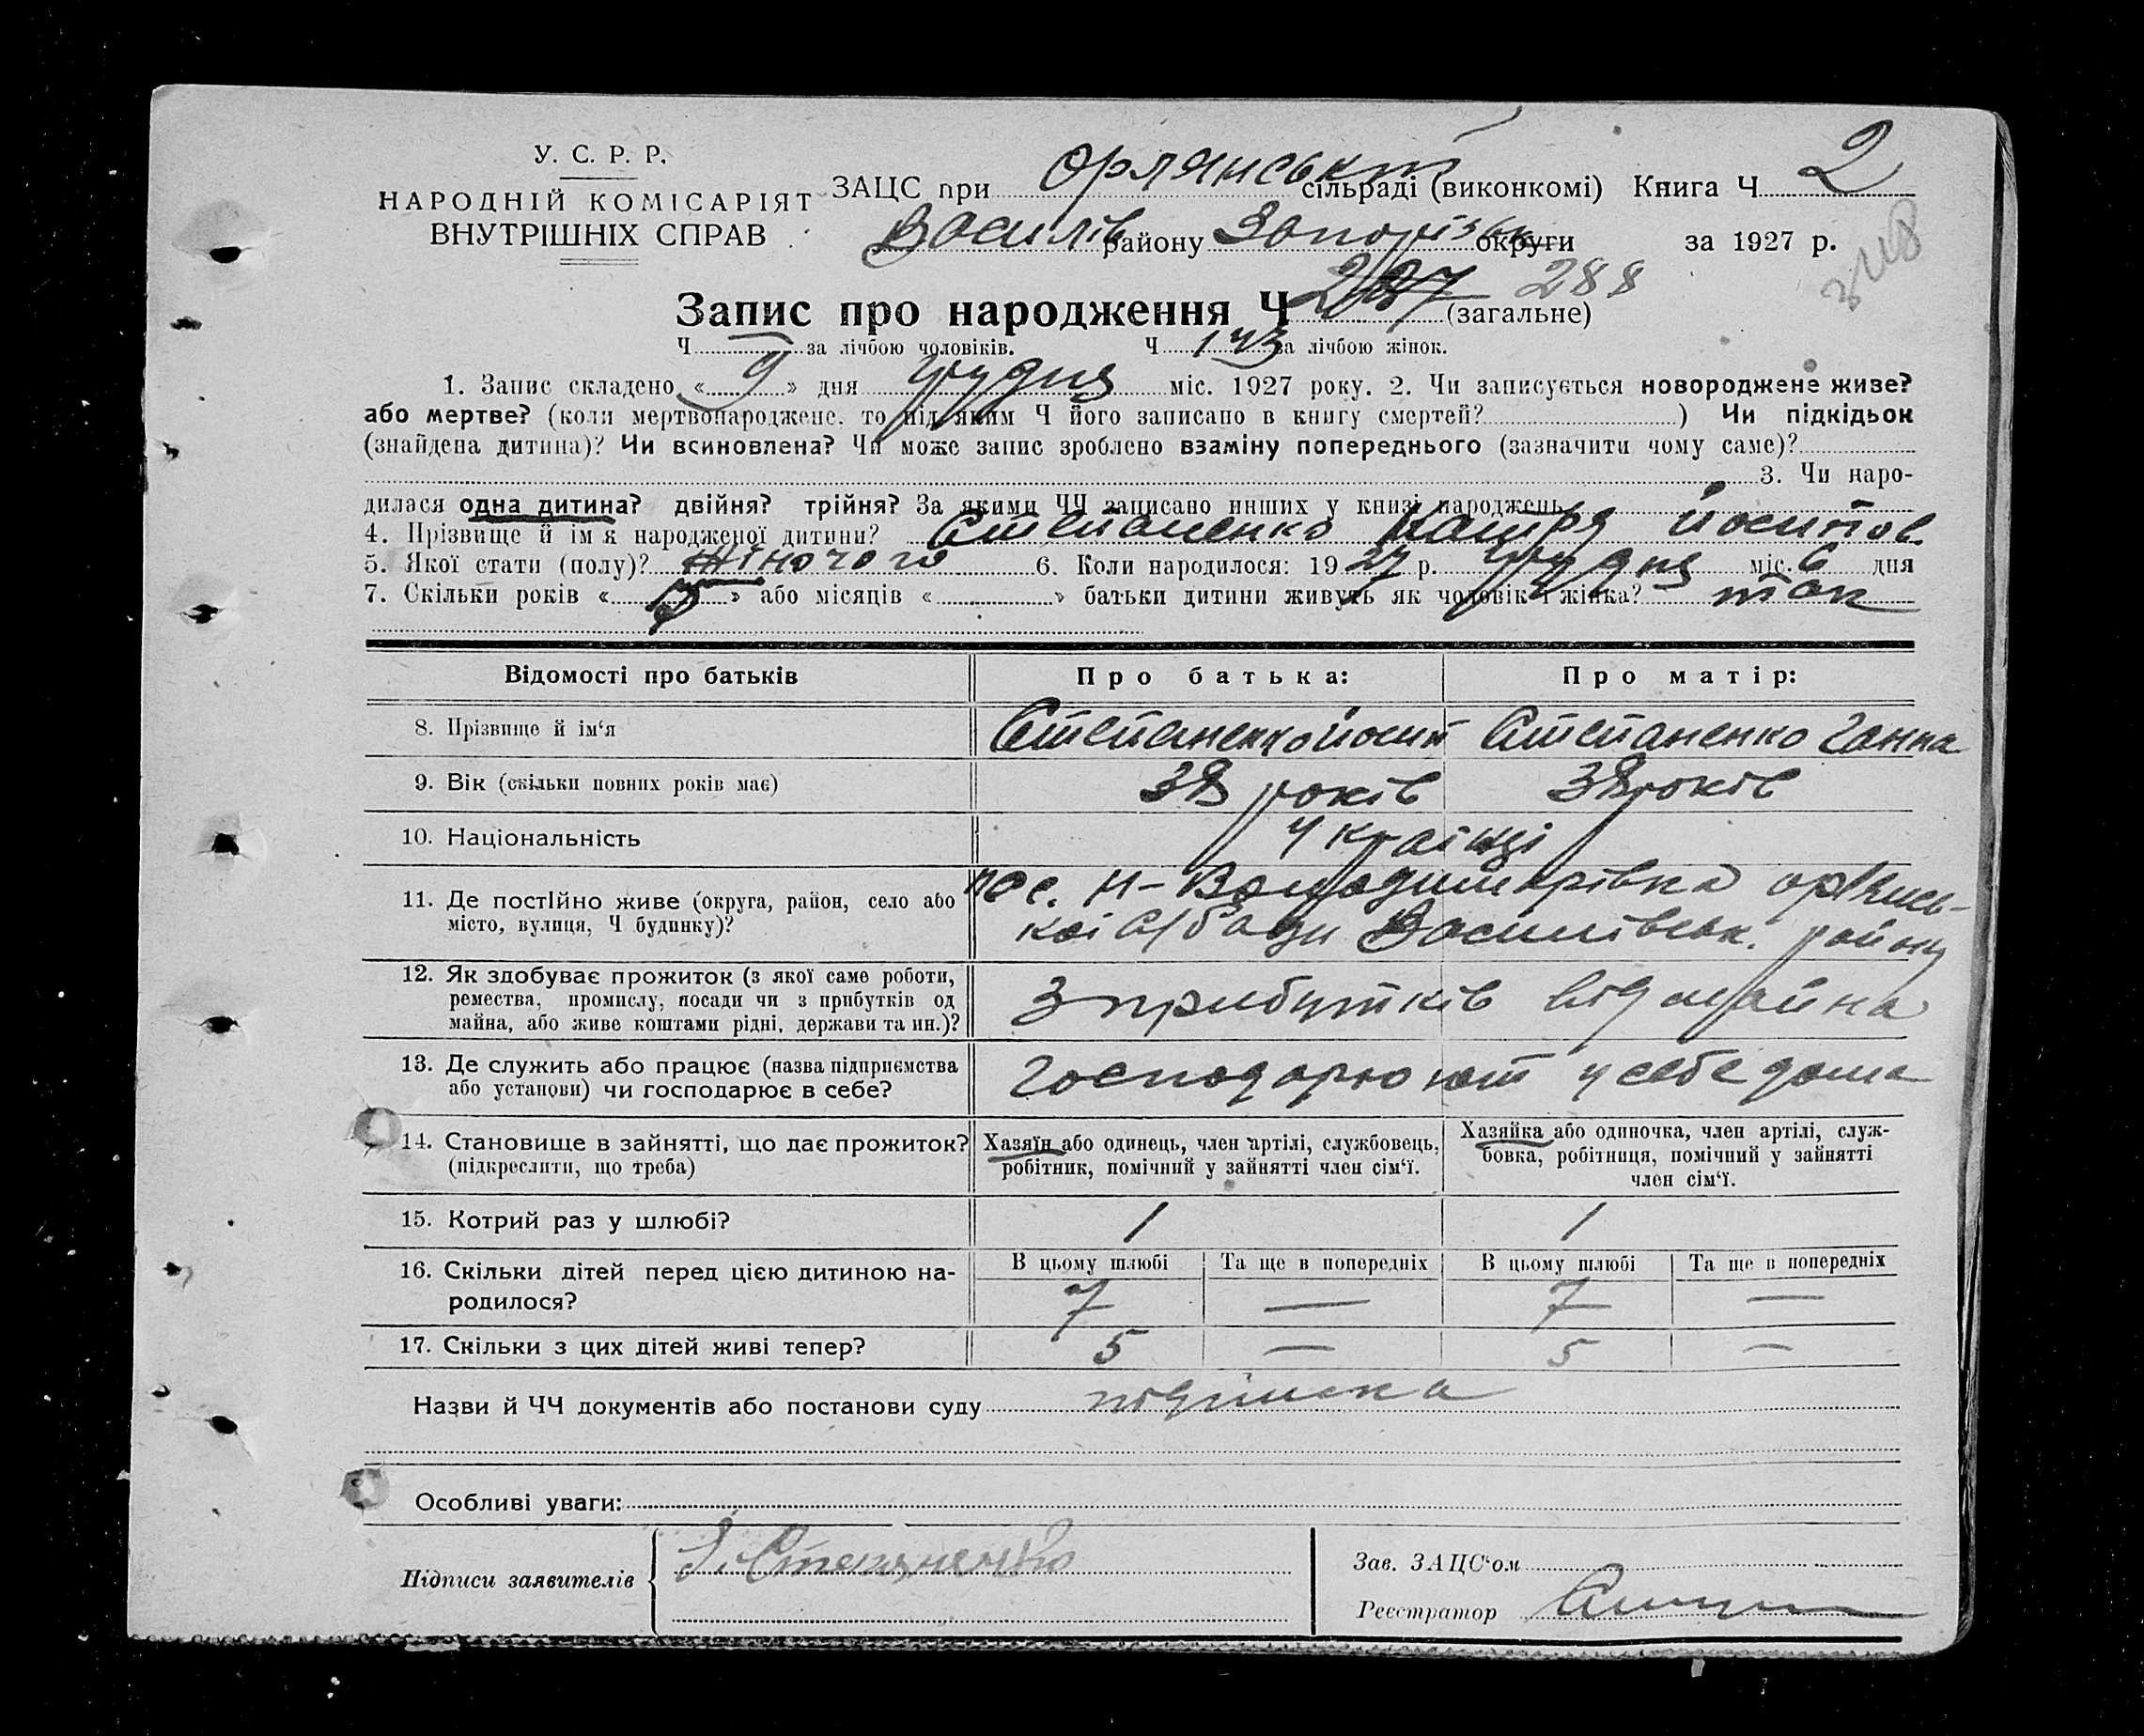 У. С. Р. Р.
НАРОДНІЙ КОМІСАРІЯТ
ВНУТРІШНІХ СПРАВ
ЗАЦС при Орлянській сільраді (виконкомі) Книга Ч 2
Василів району Запорізьк округи за 1927 р.
Запис про народження Ч 287 288 (загальне)
Ч за лічбою чоловіків. Ч 143 за лічбою жінок.
1. Запис складено «9» дня грудня міс. 1927 року. 2. Чи записується новороджене живе?
або мертве? (коли мертвонароджене, то під яким Ч його записано в книгу смертей? ) Чи підкідьок
(знайдена дитина)? Чи всиновлена? Чи може запис зроблено взаміну попереднього (зазначити чому саме)?
3. Чи наро-
дилася одна дитина? двійня? трійня? За якими ЧЧ записано инших у книзі народжень
4. Прізвище й ім'я народженої дитини? Степаненко Катря Йосипов.
5. Якої стати (полу)? жіночого 6. Коли народилося: 1927 р. грудня міс. 6 дня
7. Скільки років « » або місяців « » батьки дитини живуть як чоловік і жінка? так
Відомості про батьків Про батька: Про матір:
8. Прізвище й ім'я Степаненко Йосип Степаненко Ганна
9. Вік (скільки повних років має) 38 років 38 років
10. Національність Українці
11. Де постійно живе (округа, район, село або
місто, вулиця, Ч будинку)?
пос. Н-Володимирівка Орлянсь-
кої с/ради Василівськ. району
12. Як здобуває прожиток (з якої саме роботи,
ремества, промислу, посади чи з прибутків од
майна, або живе коштами рідні, держави та ин.)?
З прибутків від майна
13. Де служить або працює (назва підприємства
або установи) чи господарює в себе?
господарюют у себе дома
14. Становище в зайнятті, що дає прожиток?
(підкреслити, що треба)
Хазяїн або одинець, член артілі, службовець,
робітник, помічний у зайнятті член сім'ї.
Хазяйка або одиночка, член артілі, служ-
бовка, робітниця, помічний у зайнятті
член сім'ї.
15. Котрий раз у шлюбі? 1 1
16. Скільки дітей перед цією дитиною на-
родилося?
В цьому шлюбі Та ще в попередніх В цьому шлюбі Та ще в попередніх
7 — 7 —
17. Скільки з цих дітей живі тепер? 5 — 5 —
Назви й ЧЧ документів або постанови суду підписка
Особливі уваги:
Підписи заявителів Й. Степаненко
Зав. ЗАЦС'ом
Реєстратор